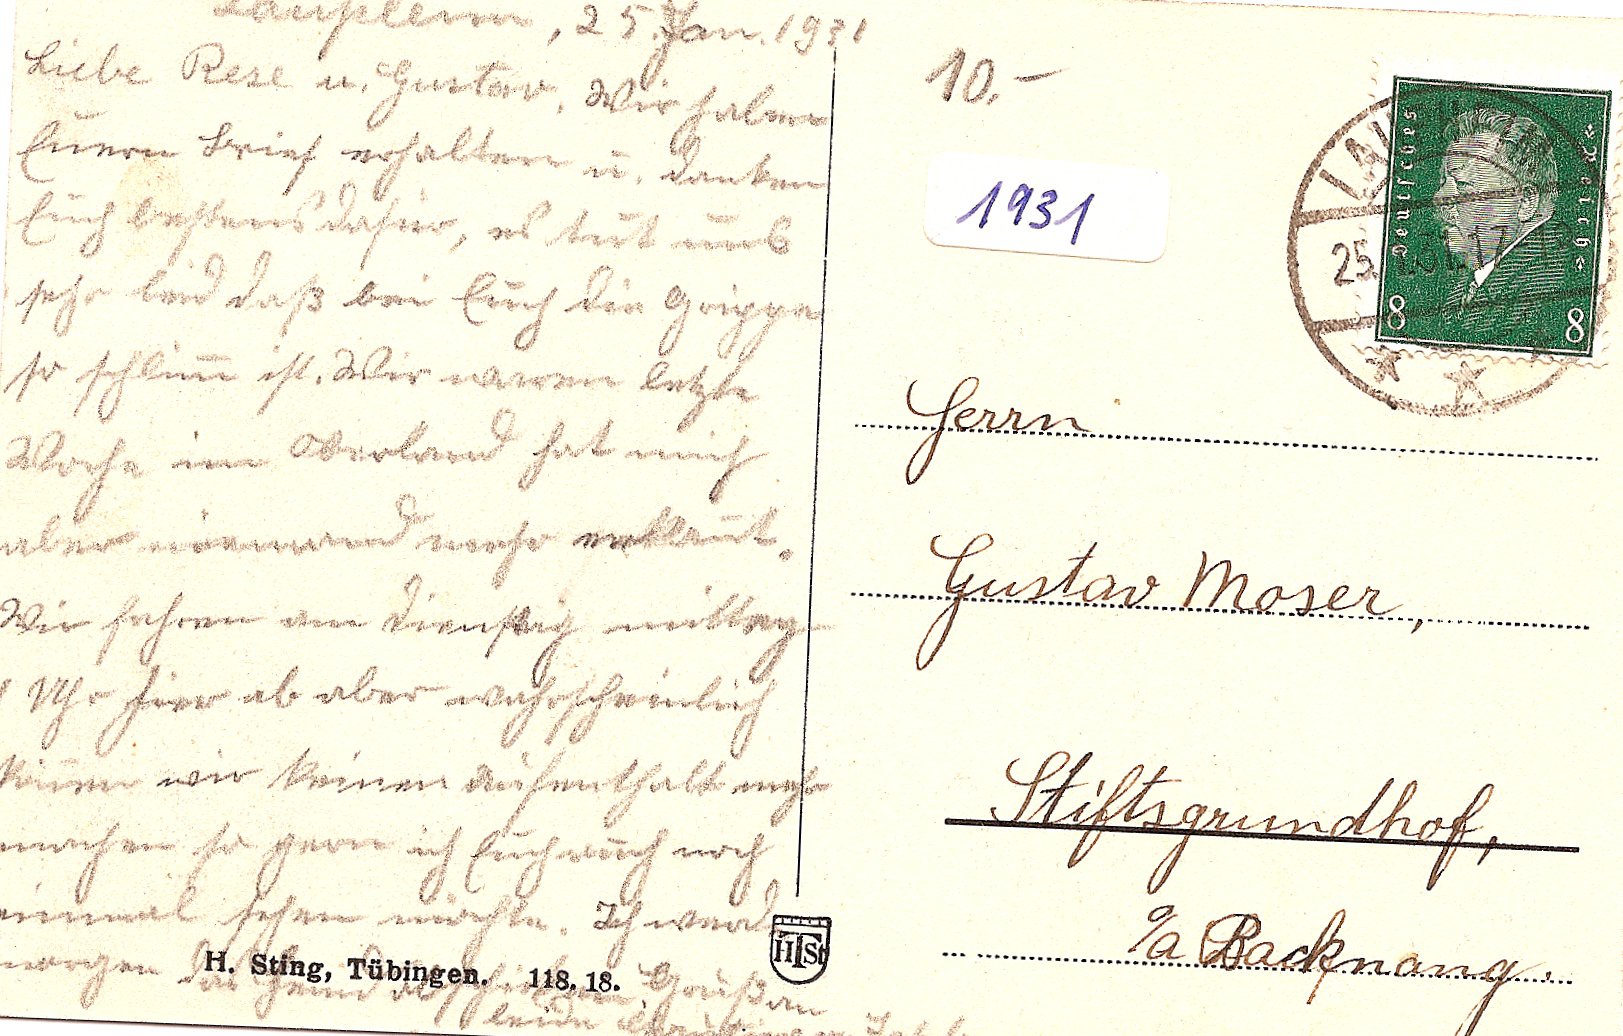 Laupheim, 25. Jan. 1931
Liebe Rese u. Gustav. Wir haben
Euern Brief erhalten u. danken
Euch bestens dafür, es tut uns
sehr leid daß bei Euch die Grippe
so schlim̅ ist. Wir waren letzte
Woche im Oberland hat mich
aber niemand mehr erkannt.
Wir fahren am Dienstag mittag
1 Uhr hier ab aber wahrscheinlich
kön̅en wir keinen Aufenthalt mehr
machen so gern ich Euch auch noch
einmal sehen möchte. Ich werde
morgen Grüße an
beide
H. Sting, Tübingen. 118. 18.
HStT
10.-
1931
Deutsches Reich
8 8
25. 1.31. 17
Herrn
Gustav Moser,
Stiftsgrundhof,
o/a Backnang.